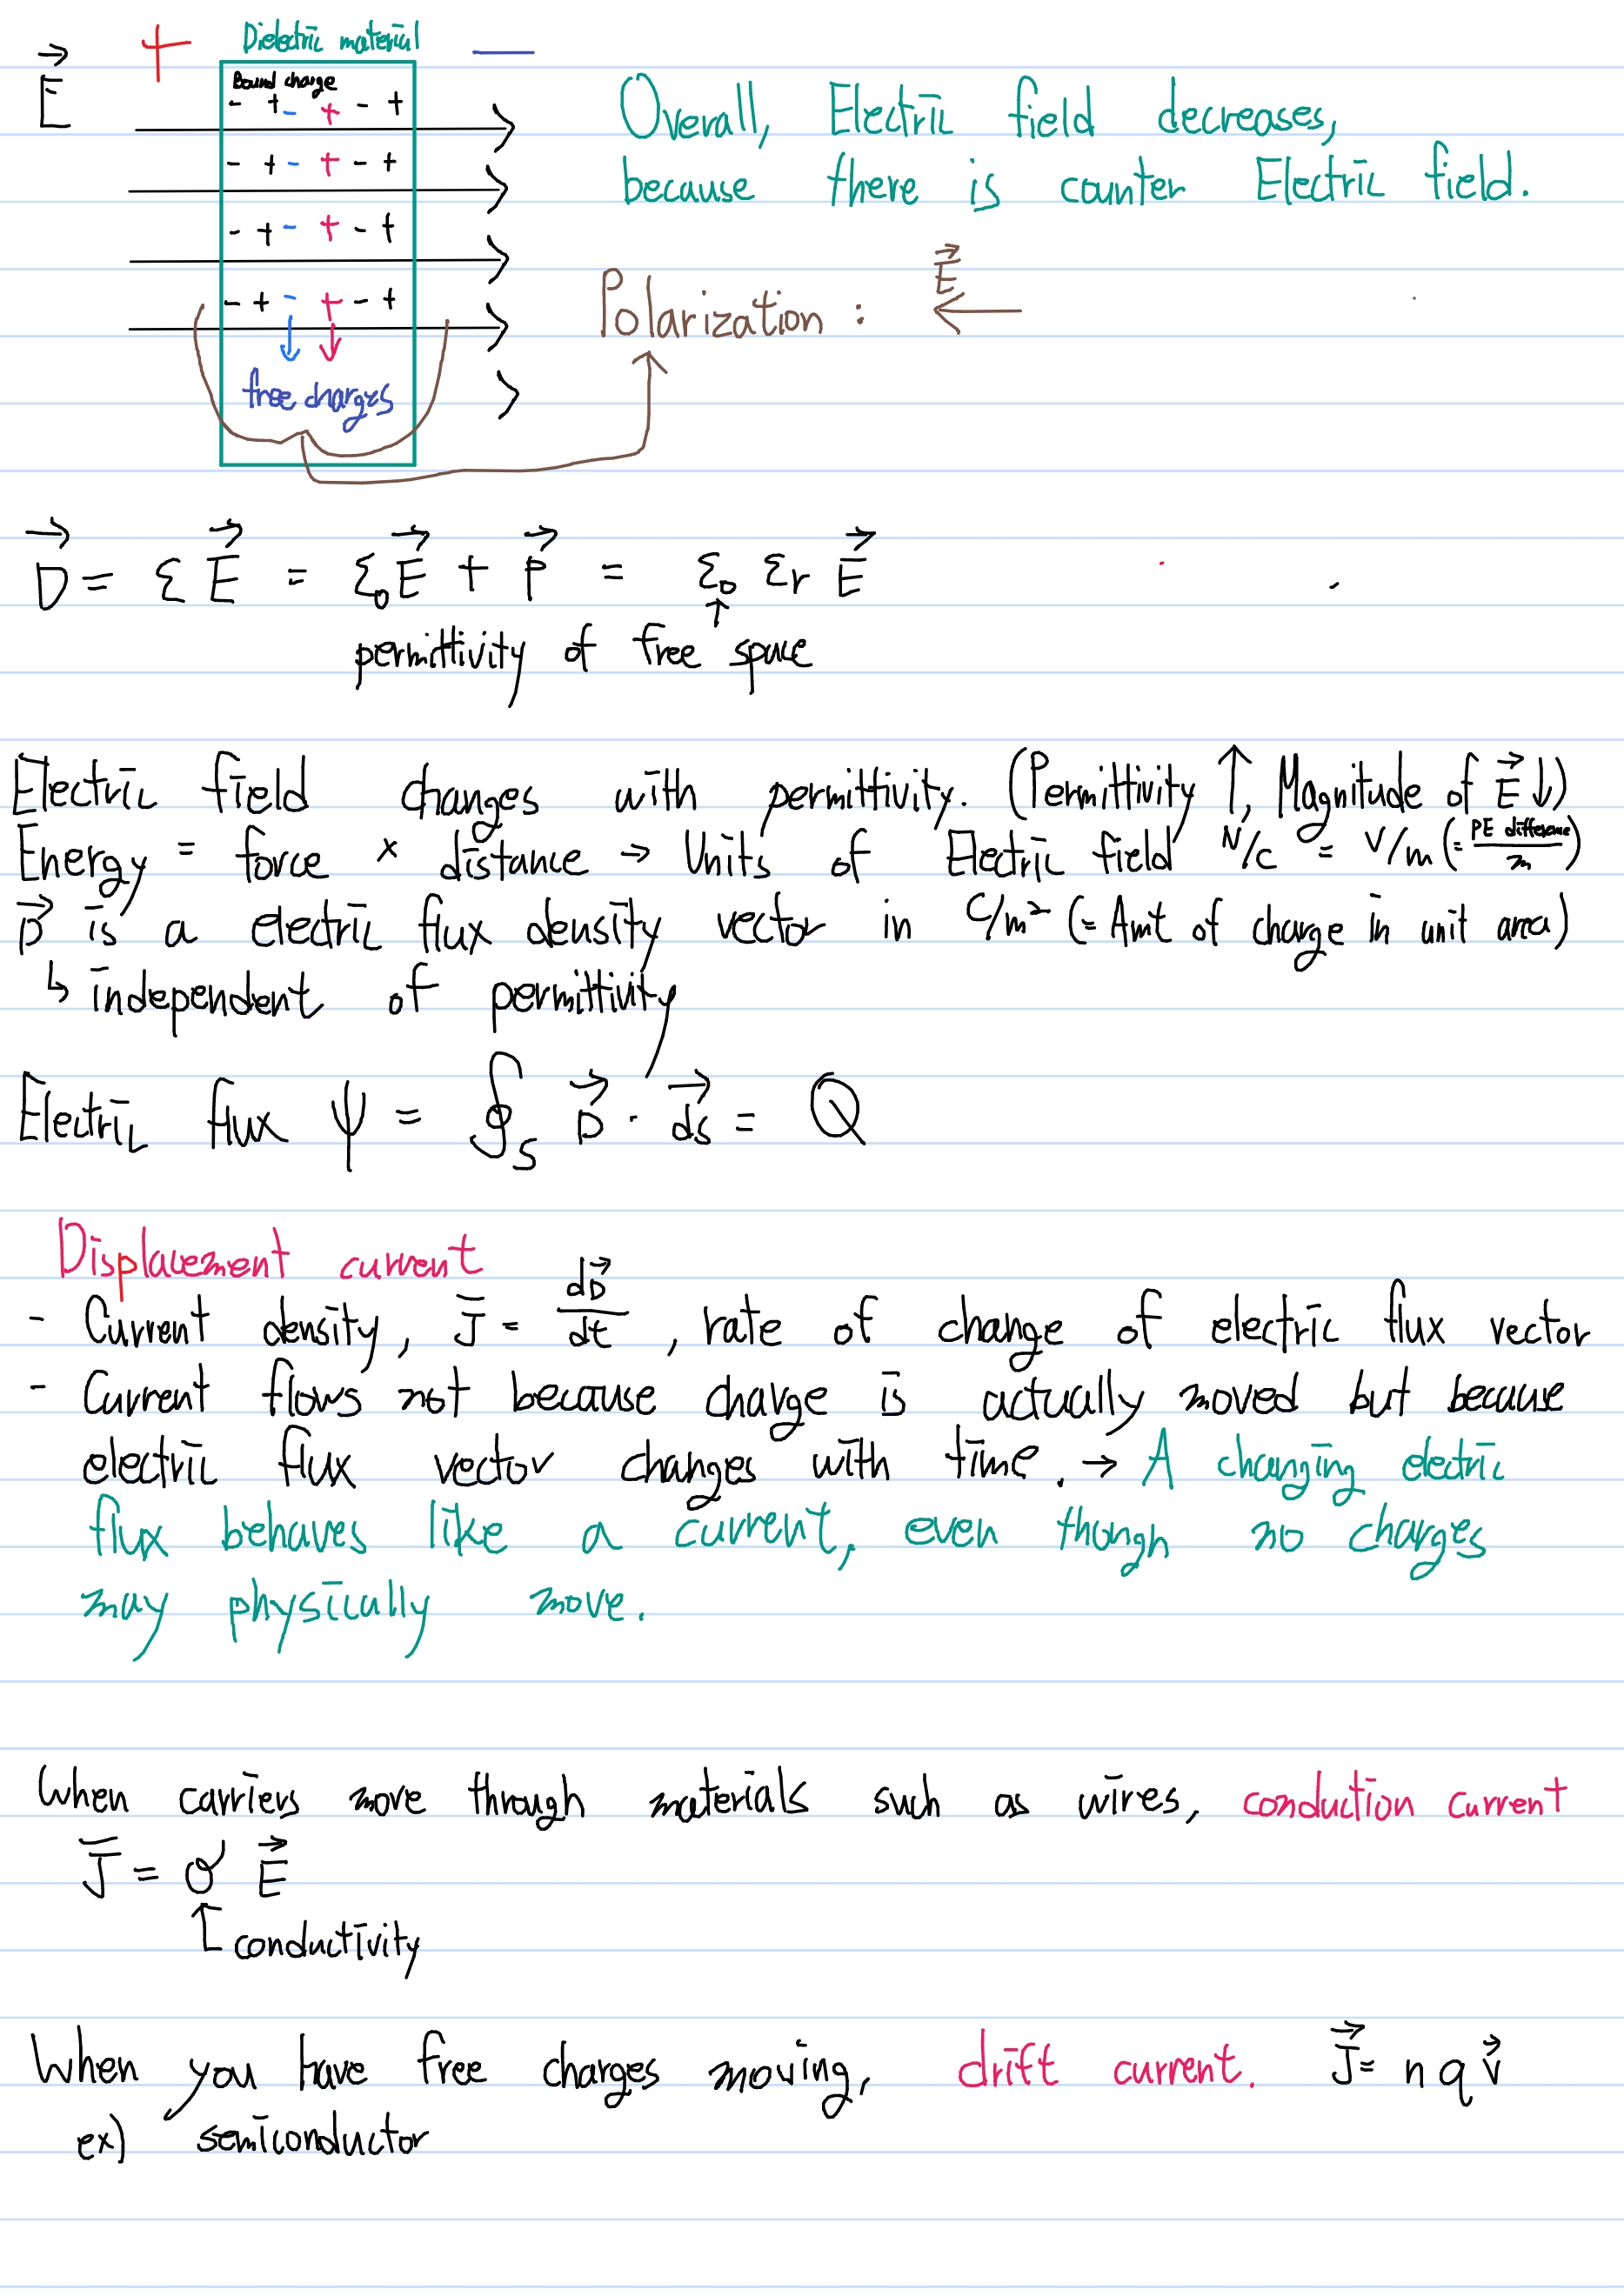 E⃗ + Dielectric material —
Bound charge
- + - + - +
- + - + - +
- + - + - +
- + - + - +
free charges
Overall, Electric field decreases,
because there is counter Electric field.
Polarization : E⃗ ←
D⃗ = ε E⃗ = ε₀ E⃗ + P⃗ = ε₀ εr E⃗
permittivity of free space
Electric field changes with permittivity. (Permittivity ↑, Magnitude of E⃗ ↓)
Energy = force × distance → Units of Electric field N/C = V/m (= PE difference / m)
D⃗ is a electric flux density vector in C/m² (= Amt of charge in unit area)
↳ independent of permittivity
Electric flux ψ = ∮s D⃗ · ds⃗ = Q
Displacement current
- Current density, J̄ = dD⃗/dt, rate of change of electric flux vector
- Current flows not because charge is actually moved but because
electric flux vector changes with time. → A changing electric
flux behaves like a current, even though no charges
may physically move.
When carriers move through materials such as wires, conduction current
J̄ = σ E⃗
conductivity
When you have free charges moving, drift current. J⃗ = n q v⃗
ex) semiconductor